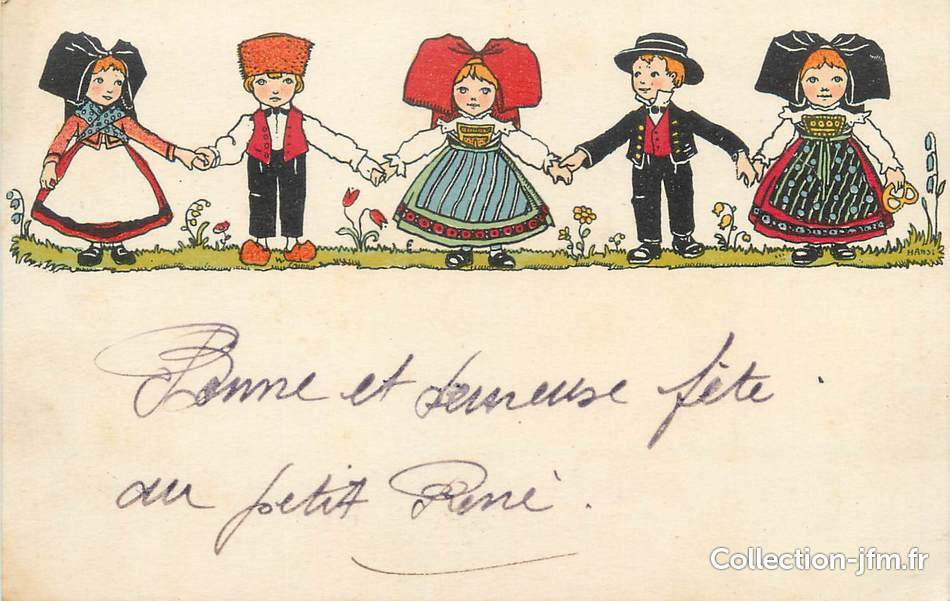 HANSI
Bonne et heureuse fête.
au petit René.
Collection-jfm.fr